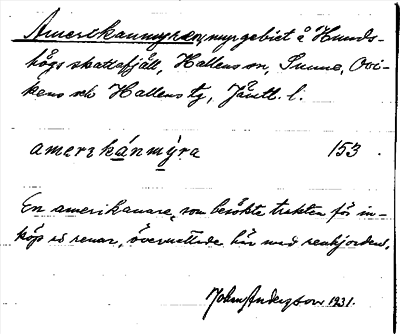 Amerikanmyren, myrgebiet å Hunds-
högs skattefjäll, Hallens sn, Sunne, Ovi-
kens och Hallens tg, Jämtl. l.
amerikánmýra 153
En amerikanare, som besökte trakten för in-
köp av renar, övernattade här med renhjorden.
Johan Anderson 1931.